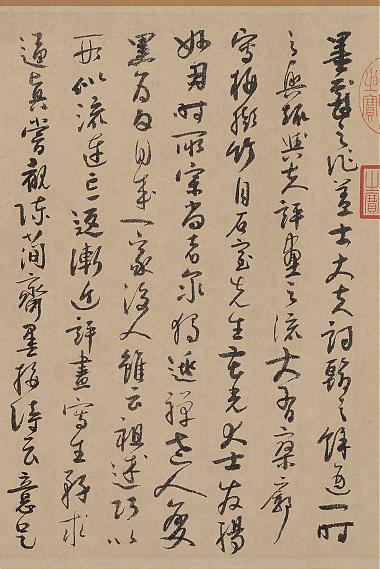 墨戲之作蓋士大夫詞翰之餘適一時
之興趣與夫評畫之流大有寥廓
寫梅擬竹自石室先生大士發揚
妙用時所宗尚者獨遜禪老人
墨為自成一家後人雖云祖述巧以
形似流連忘返漸近評畫寫生求
逼真嘗觀陳簡齋墨梅詩云意足